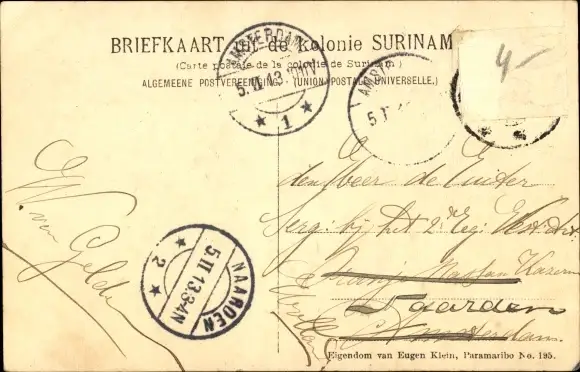 BRIEFKAART uit de Kolonie SURINAM
(Carte postale de la colonie de Surinam)
ALGEMEENE POSTVEREENIGING (UNION POSTALE UNIVERSELLE.)
4-
AMSTERDAM
5.II.13.
1
AMST
5.
W. van Gelder
den Heer de Ruiter
Serg: bij het 2e Reg: Vest: Art
Oranje Nassau Kazerne
Naarden
Amsterdam.
NAARDEN
5.II.13.3-4N
2
Eigendom van Eugen Klein, Paramaribo No. 195.